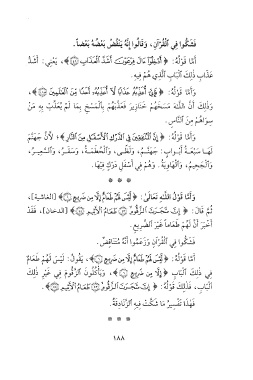 فَشَكُّوا فِي الْقُرْآنِ، وَقَالُوا إِنَّهُ يَنْقُضُ بَعْضُهُ بَعْضاً.
أَمَّا قَوْلُهُ: ﴿أَدْخِلُوا آلَ فِرْعَوْنَ أَشَدَّ الْعَذَابِ ﴿٤٦﴾﴾، يَعْنِي: أَشَدَّ
عَذَابِ ذَلِكَ الْبَابِ الَّذِي هُمْ فِيهِ.
وَأَمَّا قَوْلُهُ: ﴿فَإِنِّي أُعَذِّبُهُ عَذَاباً لَا أُعَذِّبُهُ أَحَداً مِنَ الْعَالَمِينَ ﴿١١٥﴾﴾،
وَذَلِكَ أَنَّ اللَّهَ مَسَخَهُمْ خَنَازِيرَ فَعَذَّبَهُمْ بِالْمَسْخِ بِمَا لَمْ يُعَذِّبْ بِهِ مَنْ
سِوَاهُمْ مِنَ النَّاسِ.
وَأَمَّا قَوْلُهُ: ﴿إِنَّ الْمُنَافِقِينَ فِي الدَّرْكِ الْأَسْفَلِ مِنَ النَّارِ﴾، لِأَنَّ جَهَنَّمَ
لَهَا سَبْعَةُ أَبْوَابٍ: جَهَنَّمُ، وَلَظَى، وَالْحُطَمَةُ، وَسَقَرُ، وَالسَّعِيرُ،
وَالْجَحِيمُ، وَالْهَاوِيَةُ. وَهُمْ فِي أَسْفَلِ دَرْكٍ فِيهَا.
* * *
وَأَمَّا قَوْلُ اللَّهِ تَعَالَى: ﴿لَيْسَ لَهُمْ طَعَامٌ إِلَّا مِنْ ضَرِيعٍ ﴿٦﴾﴾ [الغاشية]،
ثُمَّ قَالَ: ﴿إِنَّ شَجَرَتَ الزَّقُّومِ ﴿٤٣﴾ طَعَامُ الْأَثِيمِ ﴿٤٤﴾﴾ [الدخان]، فَقَدْ
أَخْبَرَ أَنَّ لَهُمْ طَعَاماً غَيْرَ الضَّرِيعِ.
فَشَكُّوا فِي الْقُرْآنِ وَزَعَمُوا أَنَّهُ مُتَنَاقِضٌ.
أَمَّا قَوْلُهُ: ﴿لَيْسَ لَهُمْ طَعَامٌ إِلَّا مِنْ ضَرِيعٍ ﴿٦﴾﴾، يَقُولُ: لَيْسَ لَهُمْ طَعَامٌ
فِي ذَلِكَ الْبَابِ ﴿إِلَّا مِنْ ضَرِيعٍ ﴿٦﴾﴾، وَيَأْكُلُونَ الزَّقُّومَ فِي غَيْرِ ذَلِكَ
الْبَابِ، فَذَلِكَ قَوْلُهُ: ﴿إِنَّ شَجَرَتَ الزَّقُّومِ ﴿٤٣﴾ طَعَامُ الْأَثِيمِ ﴿٤٤﴾﴾.
فَهَذَا تَفْسِيرُ مَا شَكَّتْ فِيهِ الزَّنَادِقَةُ.
* * *
١٨٨